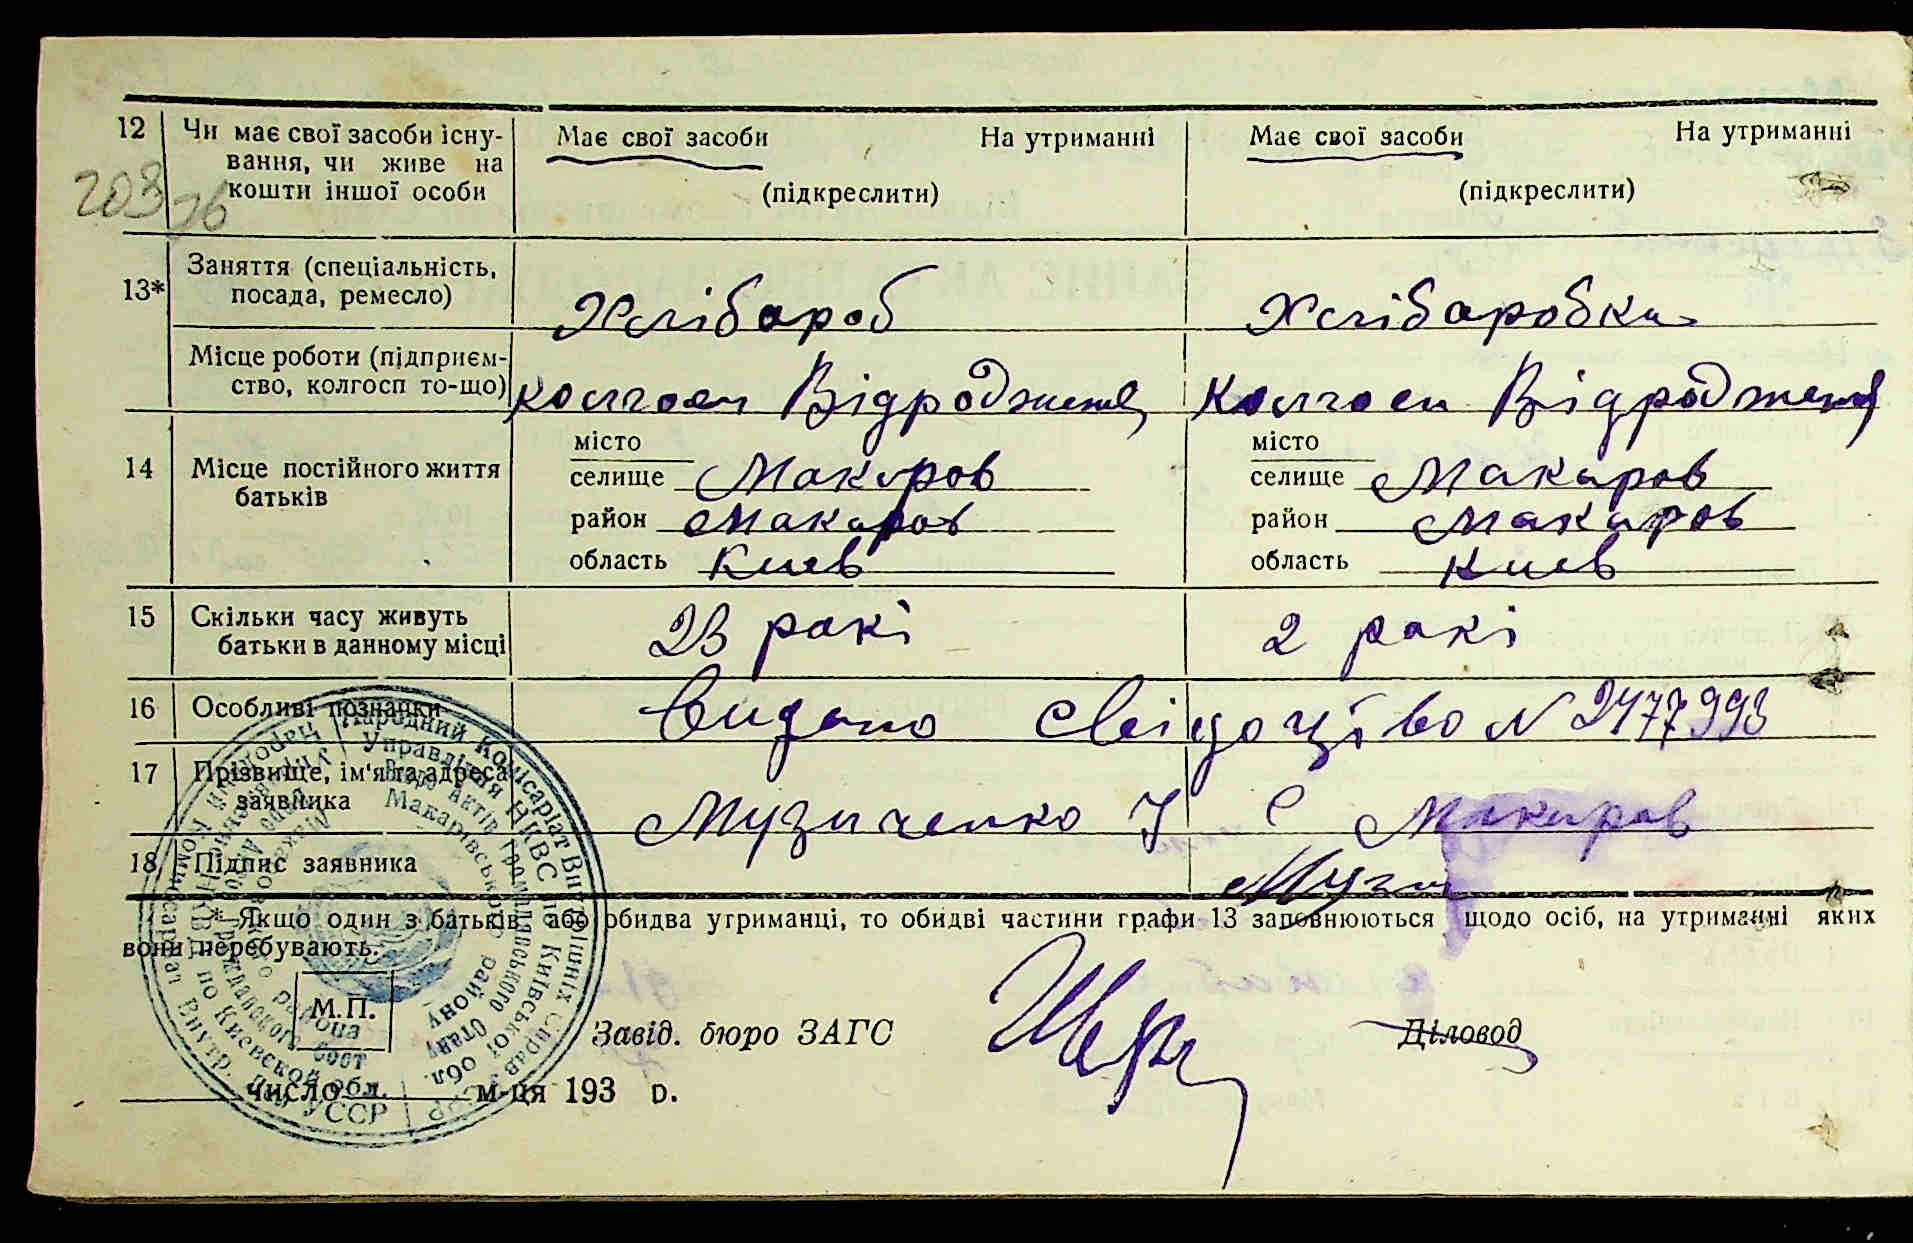 12 Чи має свої засоби існу- Має свої засоби На утриманні Має свої засоби На утриманні
вання, чи живе на
кошти іншої особи (підкреслити) (підкреслити)
203
Заняття (спеціальність,
13* посада, ремесло) Хлібороб Хліборобка
Місце роботи (підприєм-
ство, колгосп то-що) колгосп Відродження Колгосп Відродження
місто місто
14 Місце постійного життя селище Макаров селище Макаров
батьків район Макаров район Макаров
область Киев область Киев
15 Скільки часу живуть
батьки в данному місці 23 рокі 2 рокі
16 Особливі позначки Видано свідоцтво N 2477993
17 Прізвище, ім'я та адреса
заявника Музыченко У С Макаров
18 Підпис заявника Музы
* Якщо один з батьків або обидва утриманці, то обидві частини графи 13 заповнюються щодо осіб, на утриманні яких
вони перебувають.
М.П.
Завід. бюро ЗАГС Діловод
число м-ця 193 р.
Народний Комісаріат Внутрішніх Справ УСРР
Управління НКВС по Київській обл.
Бюро актів громадянського стану
Макарівського району